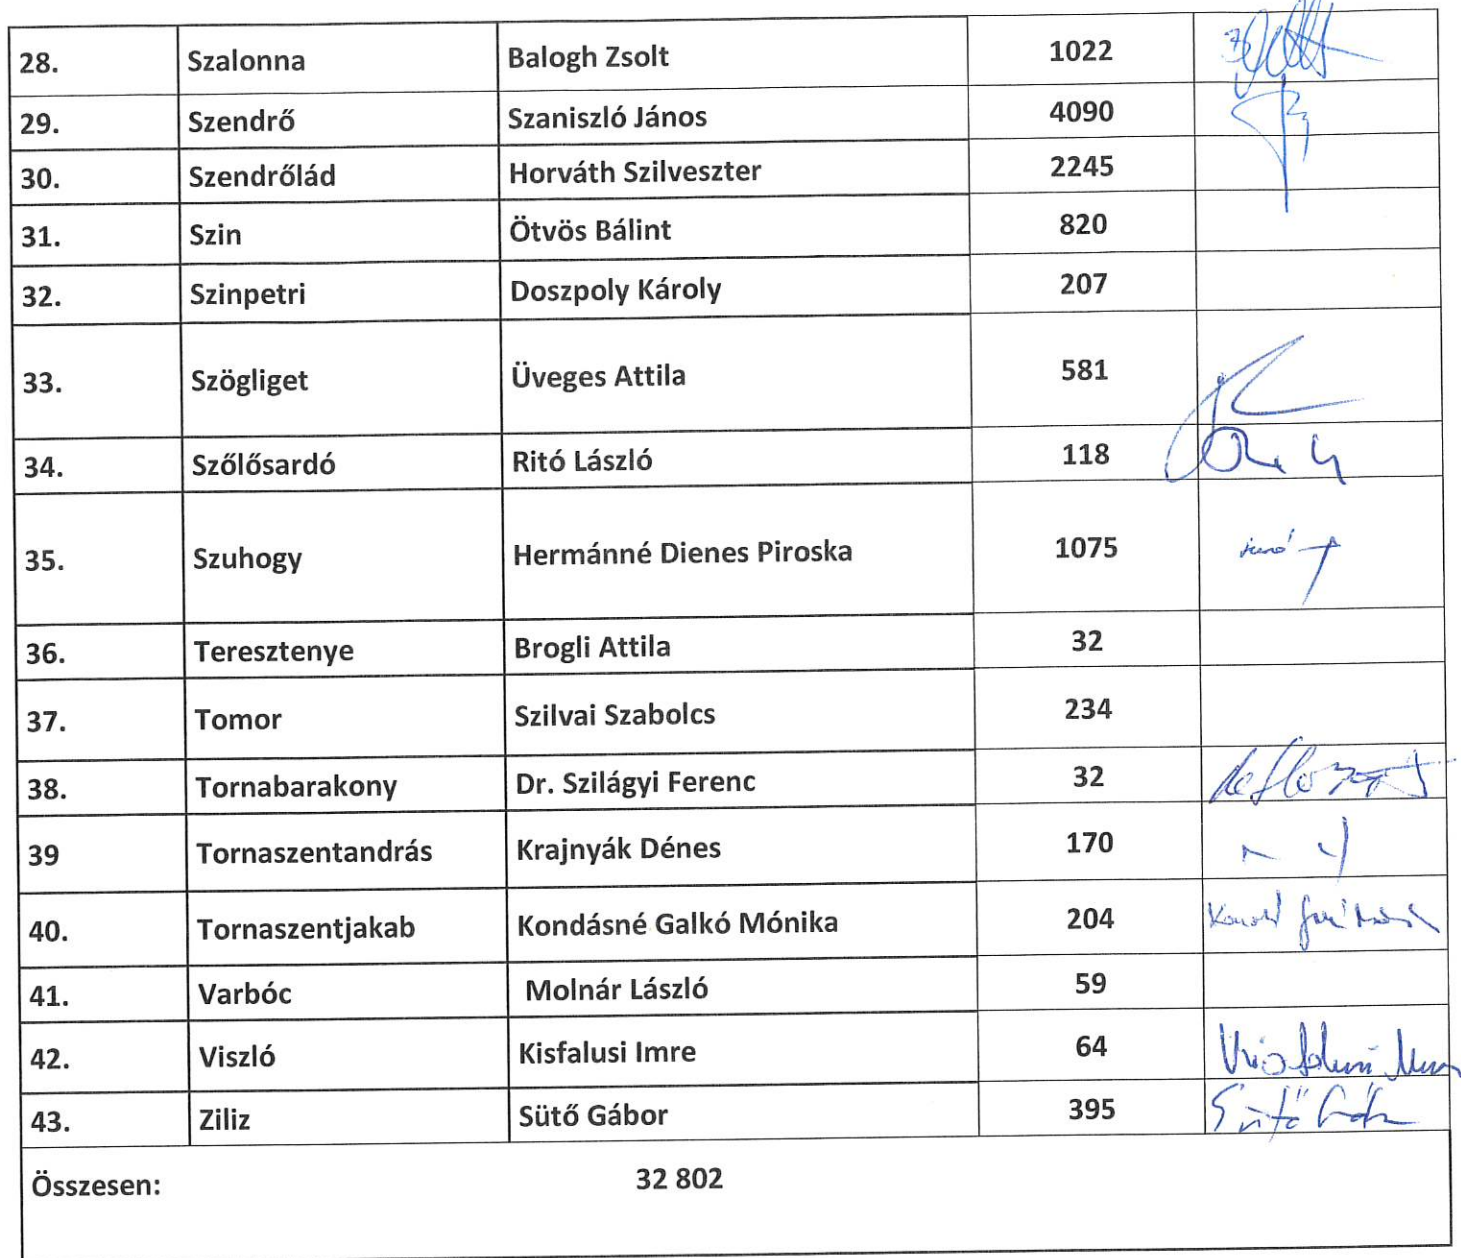 28. Szalonna Balogh Zsolt 1022
29. Szendrő Szaniszló János 4090
30. Szendrőlád Horváth Szilveszter 2245
31. Szin Ötvös Bálint 820
32. Szinpetri Doszpoly Károly 207
33. Szögliget Üveges Attila 581
34. Szőlősardó Ritó László 118
35. Szuhogy Hermánné Dienes Piroska 1075
36. Teresztenye Brogli Attila 32
37. Tomor Szilvai Szabolcs 234
38. Tornabarakony Dr. Szilágyi Ferenc 32
39 Tornaszentandrás Krajnyák Dénes 170
40. Tornaszentjakab Kondásné Galkó Mónika 204
41. Varbóc Molnár László 59
42. Viszló Kisfalusi Imre 64
43. Ziliz Sütő Gábor 395 Sütő Gábor
Összesen: 32 802